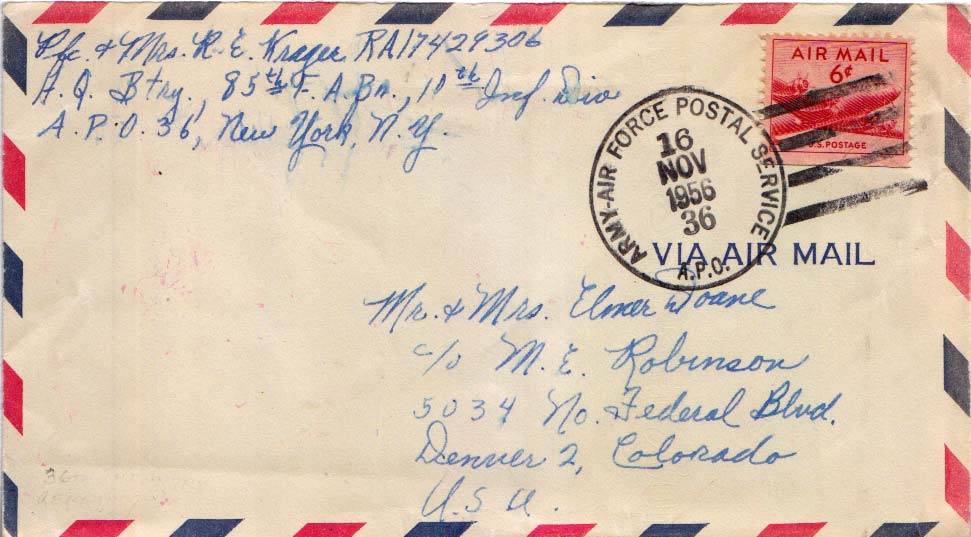 Pfc. & Mrs. R. E. Krager RA17429306
H. Q. Btry., 85th F. A. Bn., 10th Inf. Div
A. P. O. 36, New York, N. Y.
AIR MAIL
6¢
U.S. POSTAGE
ARMY-AIR FORCE POSTAL SERVICE
16
NOV
1956
36
A.P.O.
VIA AIR MAIL
Mr. & Mrs. Elmer Doane
c/o M. E. Robinson
5034 No. Federal Blvd.
Denver 2, Colorado
U. S. A.